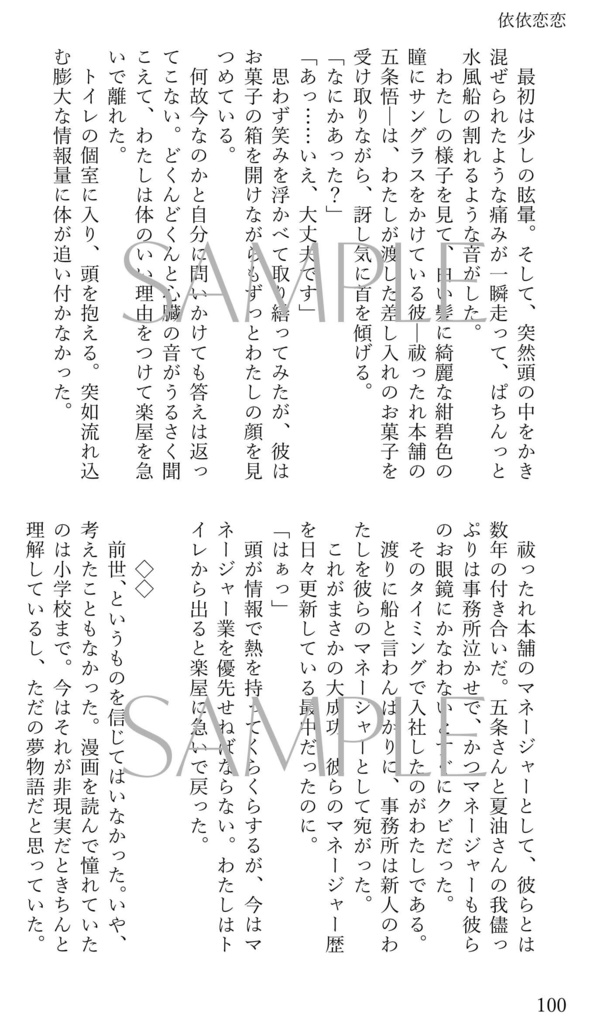 依依恋恋
　最初は少しの眩暈。そして、突然頭の中をかき
混ぜられたような痛みが一瞬走って、ぱちんっと
水風船の割れるような音がした。
　わたしの様子を見て、白い髪に綺麗な紺碧色の
瞳にサングラスをかけている彼―祓ったれ本舗の
五条悟―は、わたしが渡した差し入れのお菓子を
受け取りながら、訝し気に首を傾げる。
「なにかあった？」
「あっ……いえ、大丈夫です」
　思わず笑みを浮かべて取り繕ってみたが、彼は
お菓子の箱を開けながらもずっとわたしの顔を見
つめている。
　何故今なのかと自分に問いかけても答えは返っ
てこない。どくんどくんと心臓の音がうるさく聞
こえて、わたしは体のいい理由をつけて楽屋を急
いで離れた。
　トイレの個室に入り、頭を抱える。突如流れ込
む膨大な情報量に体が追い付かなかった。
　祓ったれ本舗のマネージャーとして、彼らとは
数年の付き合いだ。五条さんと夏油さんの我儘っ
ぷりは事務所泣かせで、かつマネージャーも彼ら
のお眼鏡にかなわないとすぐにクビだった。
　そのタイミングで入社したのがわたしである。
　渡りに船と言わんばかりに、事務所は新人のわ
たしを彼らのマネージャーとして宛がった。
　これがまさかの大成功　彼らのマネージャー歴
を日々更新している最中だったのに。
「はぁっ」
　頭が情報で熱を持ってくらくらするが、今はマ
ネージャー業を優先せねばならない。わたしはト
イレから出ると楽屋に急いで戻った。
◇◇
　前世、というものを信じてはいなかった。いや、
考えたこともなかった。漫画を読んで憧れていた
のは小学校まで。今はそれが非現実だときちんと
理解しているし、ただの夢物語だと思っていた。
SAMPLE
SAMPLE
100